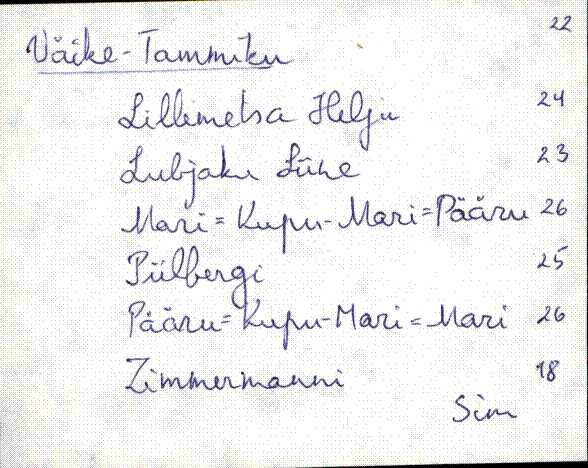 22
Väike-Tammiku
Lillemetsa Helju 24
Lubjaku Liine 23
Mari=Kupu-Mari=Pääru 26
Piilbergi 25
Pääru=Kupu-Mari=Mari 26
Zimmermanni 18
Sim